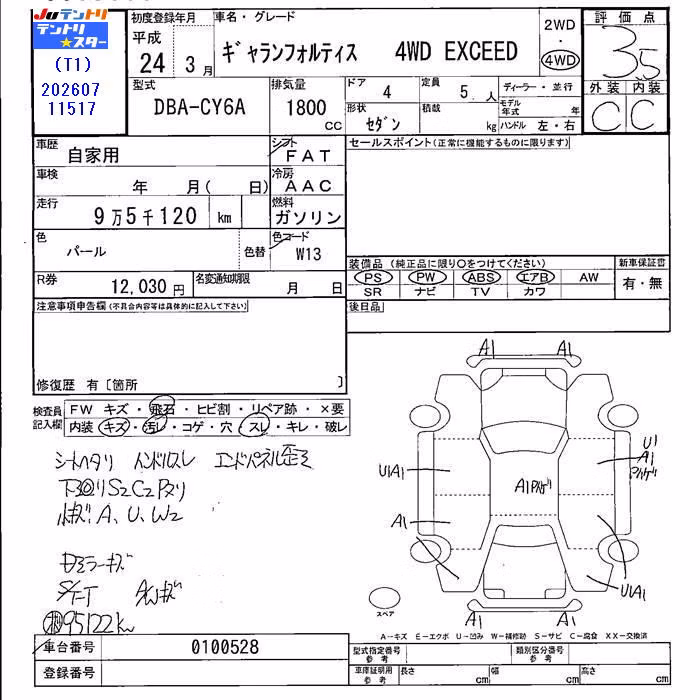 JUテントリ
テントリ★スター
(T1)
202607
11517
初度登録年月
平成
24 3月
車名・グレード
ギャランフォルティス 4WD EXCEED
2WD
・
4WD
評価点
3.5
外装 内装
C C
型式
DBA-CY6A
排気量
1800 CC
ドア 4
定員 5 人
形状 セダン
積載 kg
ディーラー・並行
モデル年式 年
ハンドル 左・右
車歴 自家用
シフト FAT
車検 年 月( 日)
冷房 AAC
走行 9万5千120 km
燃料 ガソリン
色 パール 色替
色コード W13
R券 12,030円
名変通知期限 月 日
セールスポイント(正常に機能するものに限ります)
装備品(純正品に限り○をつけてください)
PS PW ABS エアB AW
SR ナビ TV カワ
新車保証書
有・無
後日品
注意事項申告欄(不具合内容等は具体的に記入して下さい)
修復歴 有〔箇所 〕
検査員記入欄
FW キズ・飛石・ヒビ割・リペア跡・×要
内装 キズ・汚レ・コゲ・穴・スレ・キレ・破レ
シートヘタリ ハンドルスレ エンドパネル歪ミ
下回りS2C2P々リ
小キズ、A、U、W2
ミラーキズ
S/F-T AWキズ
95122km
A1 A1
U1
A1
U1A1
A1
A1
U1A1
A1 A1
スペア
A-キズ E-エクボ U-凹み W-補修跡 S-サビ C-腐食 XX-交換済
車台番号 0100528
登録番号
型式指定番号 参考
類別区分番号 参考
車庫証明用 参考
長さ cm 幅 cm 高さ cm